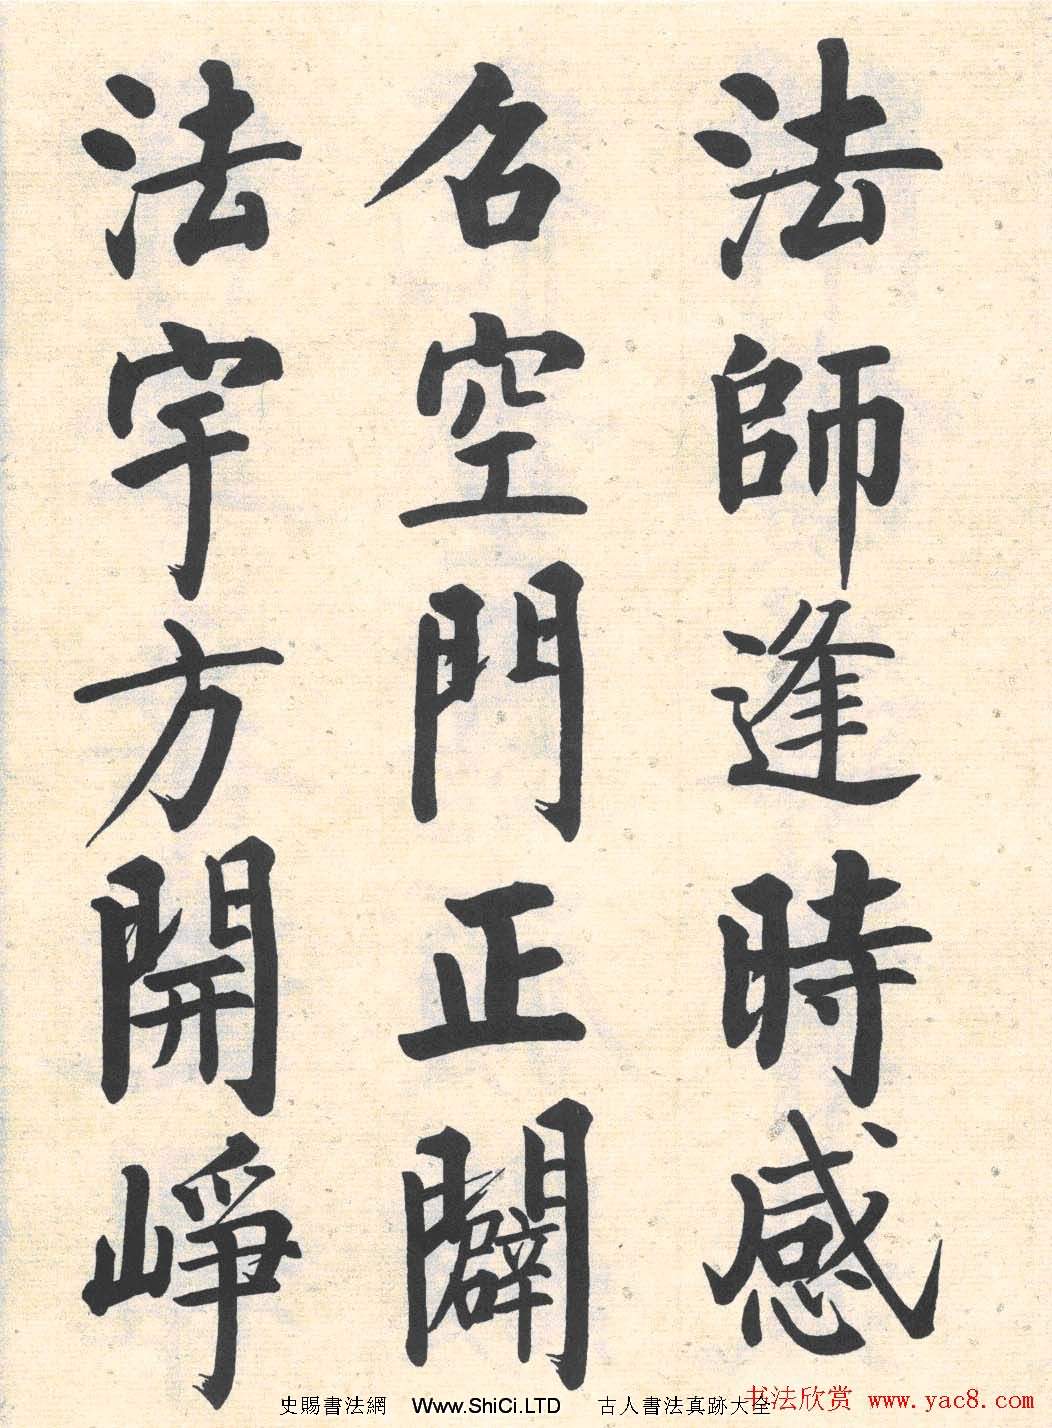 法師逢時感
名空門正闢
法宇方開崢
史賜書法網 Www.ShiCi.LTD 古人書法真跡大全
书法欣赏 www.yac8.com